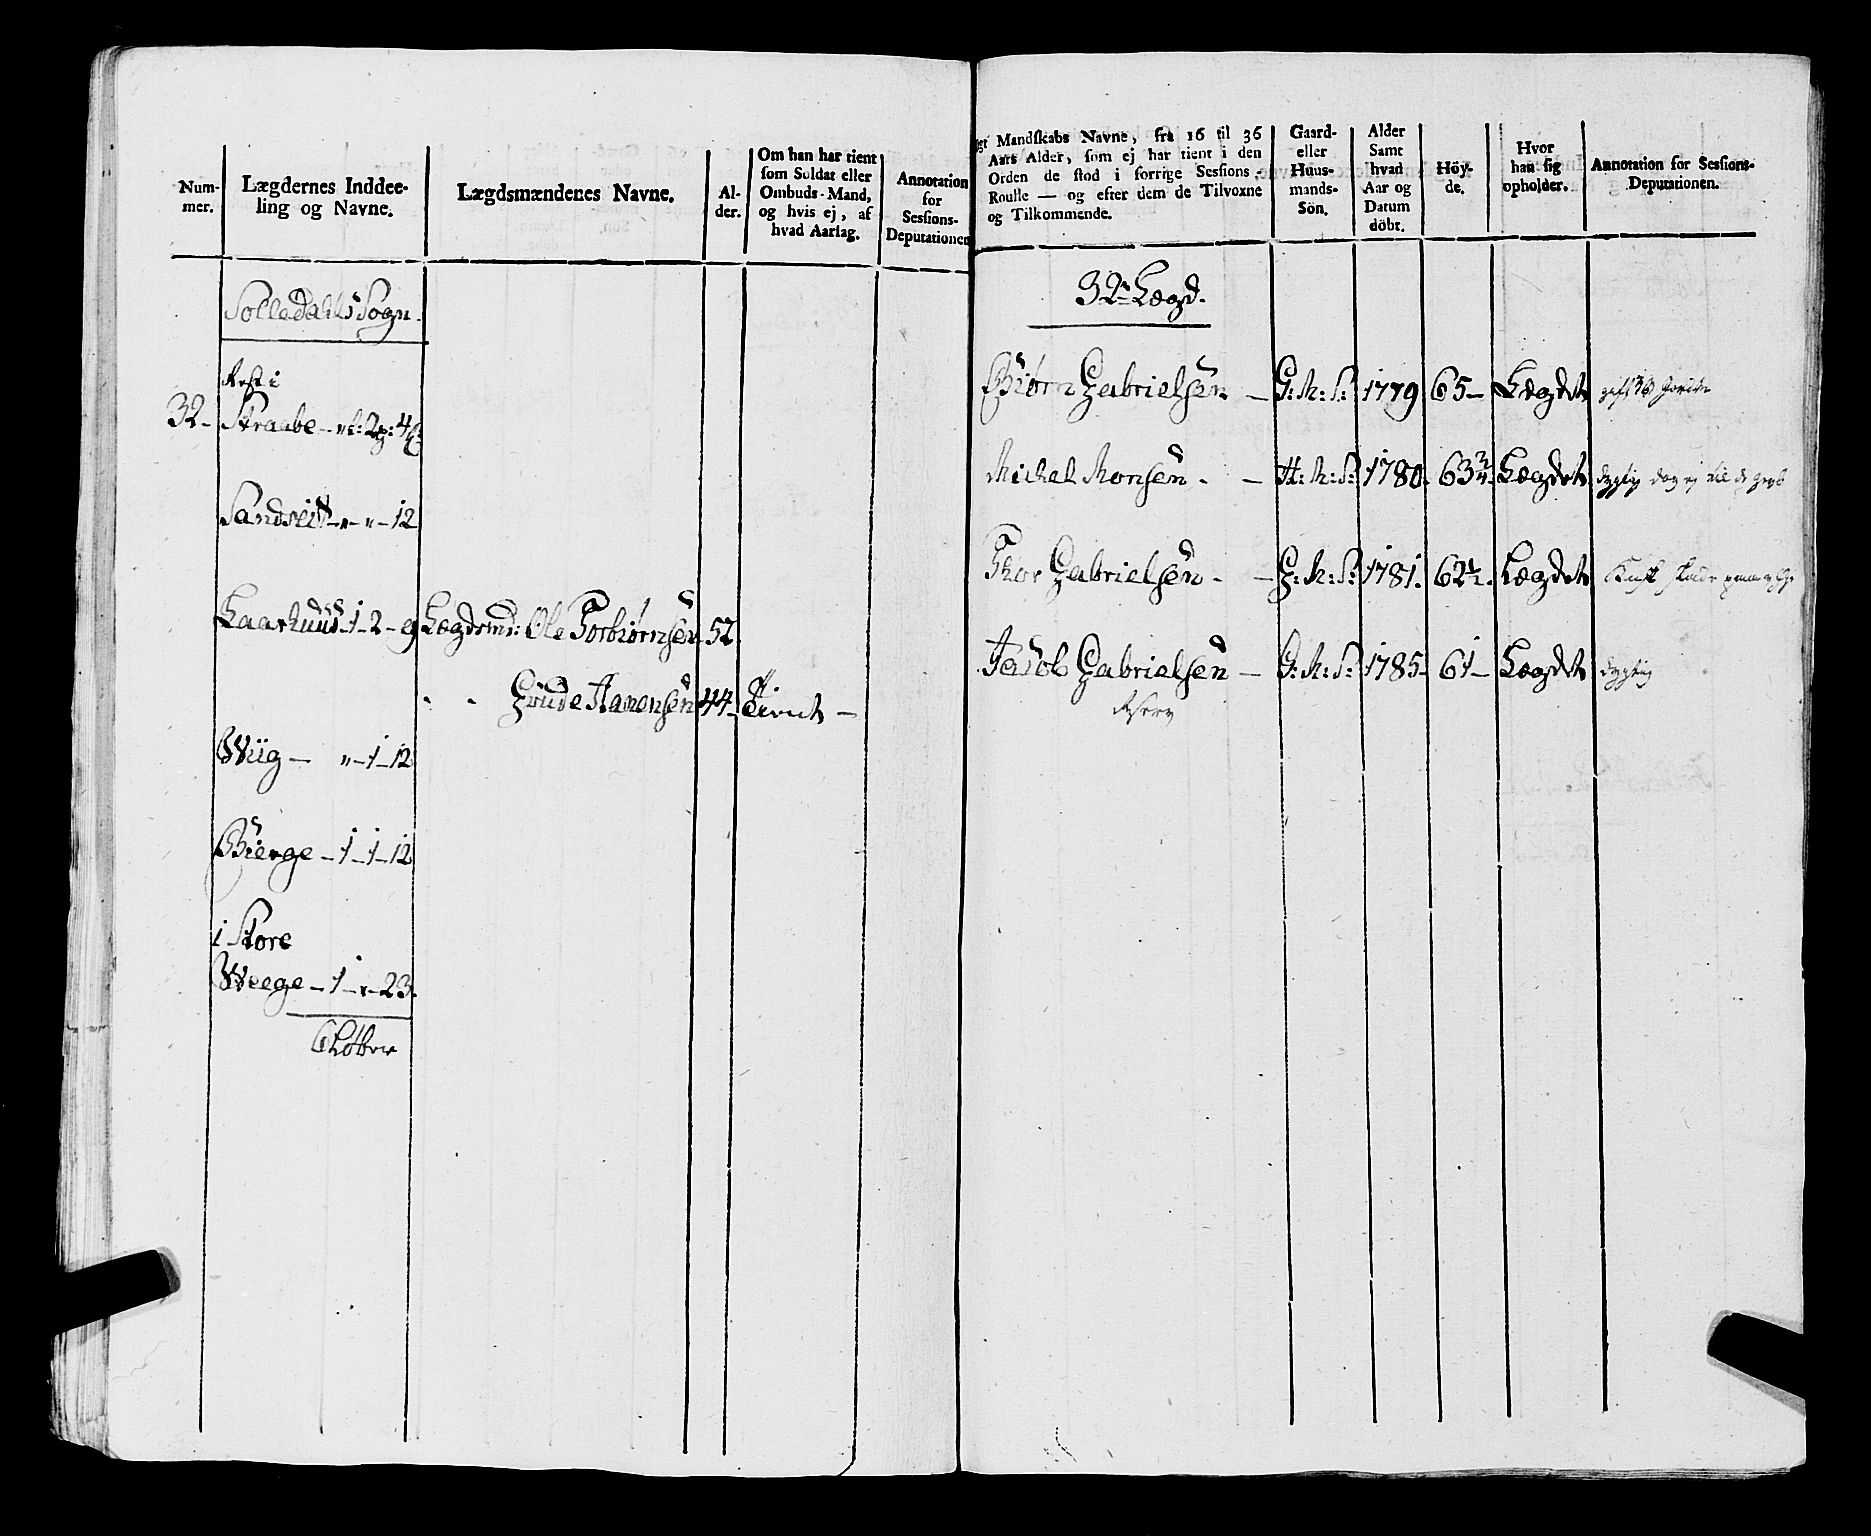 Num-
mer.
Lægdernes Inddee-
ling og Navne.
Lægdsmændenes Navne.
Al-
der.
Om han har tient
som Soldat eller
Ombuds-Mand,
og hvis ej, af
hvad Aarsag.
Annotation
for
Sessions-
Deputationen
Solledahls Sogn.
Rest i
32- Straabe
Sandveit - " - " - 12
Laarhuus - 1 - 2 - Lægdsmd: Ole Torbiørnsen 52.
Gude Aanensen 44 - Tient -
Wiig - " - 1 - 12
Bierge - 1 - 1 - 12
i Store
Weege - 1 - " - 23.
Mandskabs Navne, fra 16 til 36
Aars Alder, som ej har tient i den
Orden de stod i forrige Sessions-
Roulle — og efter dem de Tilvoxne
og Tilkommende.
Gaard-
eller
Huus-
mands-
Sön.
Alder
Samt
hvad
Aar og
Datum
döbt.
Höy-
de.
Hvor
han sig
opholder.
Annotation for Sessions-
Deputationen.
32te Lægd.
Biørn Gabrielsen - G: M: S: 1779 65 - Lægdet
Michel Monsen - - H: M: S: 1780. 63 3/4 - Lægdet dygtig dog ej
Thor Gabrielsen - - G: M: S: 1781. 62 1/2 - Lægdet
Jacob Gabrielsen - G: M: S: 1785 - 61 - Lægdet dygtig